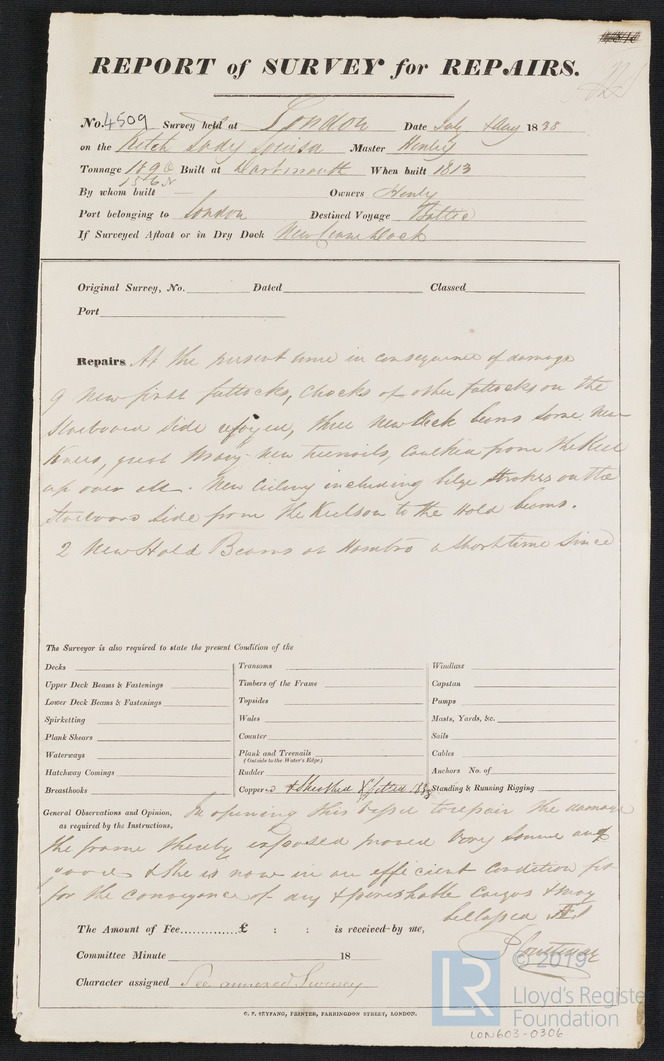 REPORT of SURVEY for REPAIRS.
No. 4509 Survey held at London Date July & Aug 1838
on the Ketch Lady Louisa Master Henley
Tonnage Built at Dartmouth When built 1813
156 N
By whom built — Owners Henly
Port belonging to London Destined Voyage Baltic
If Surveyed Afloat or in Dry Dock New Crane Dock
Original Survey, No. Dated Classed
Port
Repairs. At the present time in consequence of damage
9 New first futtocks, Chocks of other futtocks on the
Starboard side, three New Deck beams some New
Knees, great many new treenails, caulked from the Keel
up over all. New Cieling including bilge strakes on the
Starboard side from the Keelson to the Hold beams.
2 New Hold Beams at Hambro a short time since
The Surveyor is also required to state the present Condition of the
Decks Transoms Windlass
Upper Deck Beams & Fastenings Timbers of the Frame Capstan
Lower Deck Beams & Fastenings Topsides Pumps
Spirketting Wales Masts, Yards, &c.
Plank Shears Counter Sails
Waterways Plank and Treenails Cables
(Outside to the Water's Edge)
Hatchway Comings Rudder Anchors No. of
Breasthooks Coppered & Sheathed & felted Standing & Running Rigging
General Observations and Opinion, In opening this vessel to repair the damage
as required by the Instructions,
the frame thereby exposed proved very sound and
good & She is now in an efficient condition fit
for the conveyance of dry & perishable cargos & may
be classed
The Amount of Fee..............£ : : is received by me,
Committee Minute 18
Character assigned See annexed Survey
C. F. SEYFANG, PRINTER, FARRINGDON STREET, LONDON.
LR © 2019
Lloyd's Registe
Foundation
LON603-0306